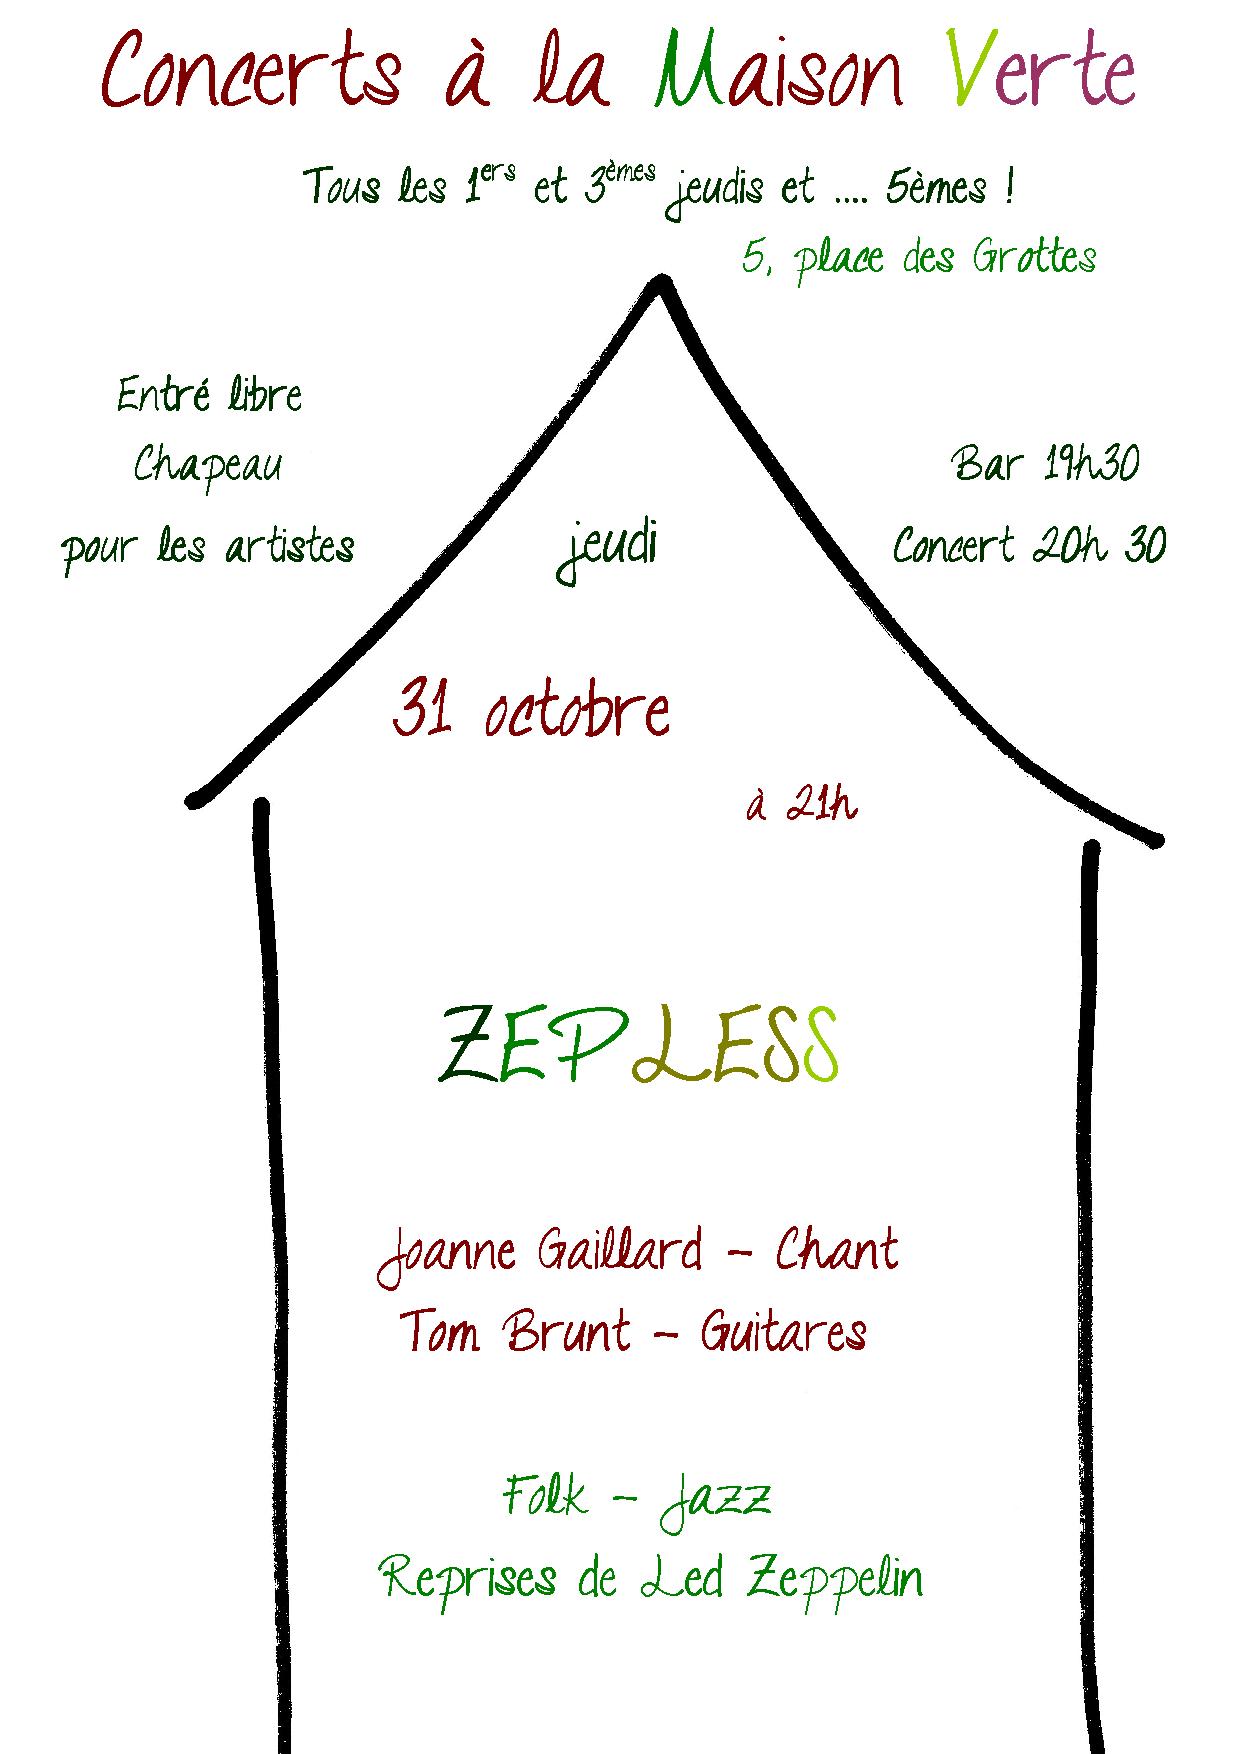 Concerts à la Maison Verte
Tous les 1ers et 3èmes jeudis et .... 5èmes !
5, place des Grottes
Entré libre
Chapeau
pour les artistes
Bar 19h30
Concert 20h 30
jeudi
31 octobre
à 21h
ZEPLESS
Joanne Gaillard – Chant
Tom Brunt – Guitares
Folk – Jazz
Reprises de Led Zeppelin